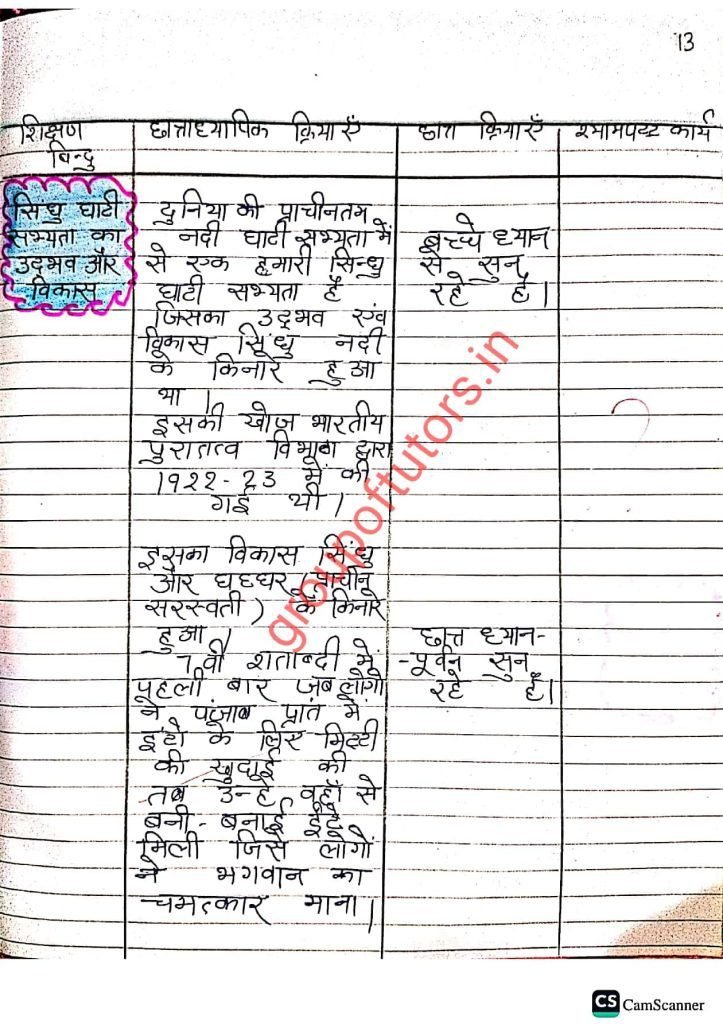 13
शिक्षण
बिन्दु
छात्राध्यापिक क्रियाएँ
छात्र क्रियाएँ
श्यामपट्ट कार्य
सिंधु घाटी
सभ्यता का
उद्भव और
विकास
दुनिया की प्राचीनतम
नदी घाटी सभ्यता में
से एक हमारी सिन्धु
घाटी सभ्यता है
जिसका उद्भव एंव
विकास सिंधु नदी
के किनारे हुआ
था ।
इसकी खोज भारतीय
पुरातत्व विभाग द्वारा
1922-23 में की
गई थी ।
इसका विकास सिंधु
और घघ्घर (प्राचीन
सरस्वती) के किनारे
हुआ ।
7वी शताब्दी में
पहली बार जब लोगो
ने पंजाब प्रांत में
इंटो के लिए मिट्टी
की खुदाई की
तब उन्हे वहाँ से
बनी-बनाई ईंटे
मिली जिसे लोगों
ने भगवान का
चमत्कार माना ।
बच्चे ध्यान
से सुन
रहे है ।
छात्र ध्यान-
-पूर्वन सुन
रहे है।
groupoftutors.in
CS CamScanner